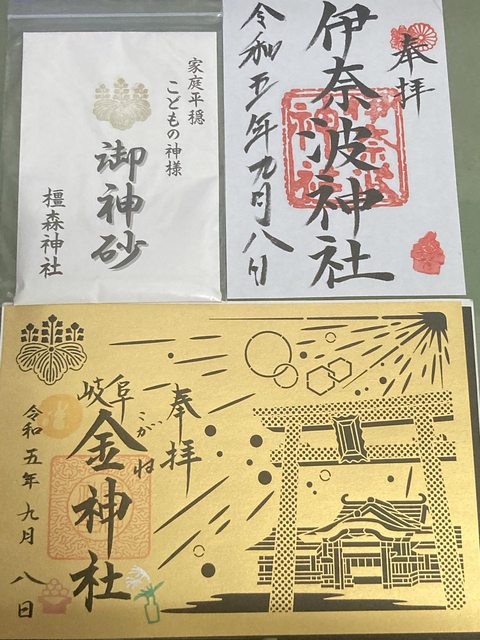 家庭平穏
こどもの神様
御神砂
橿森神社
奉拝
伊奈波神社
令和五年九月八日
奉拝
岐阜
金神社
こがね
令和五年九月八日